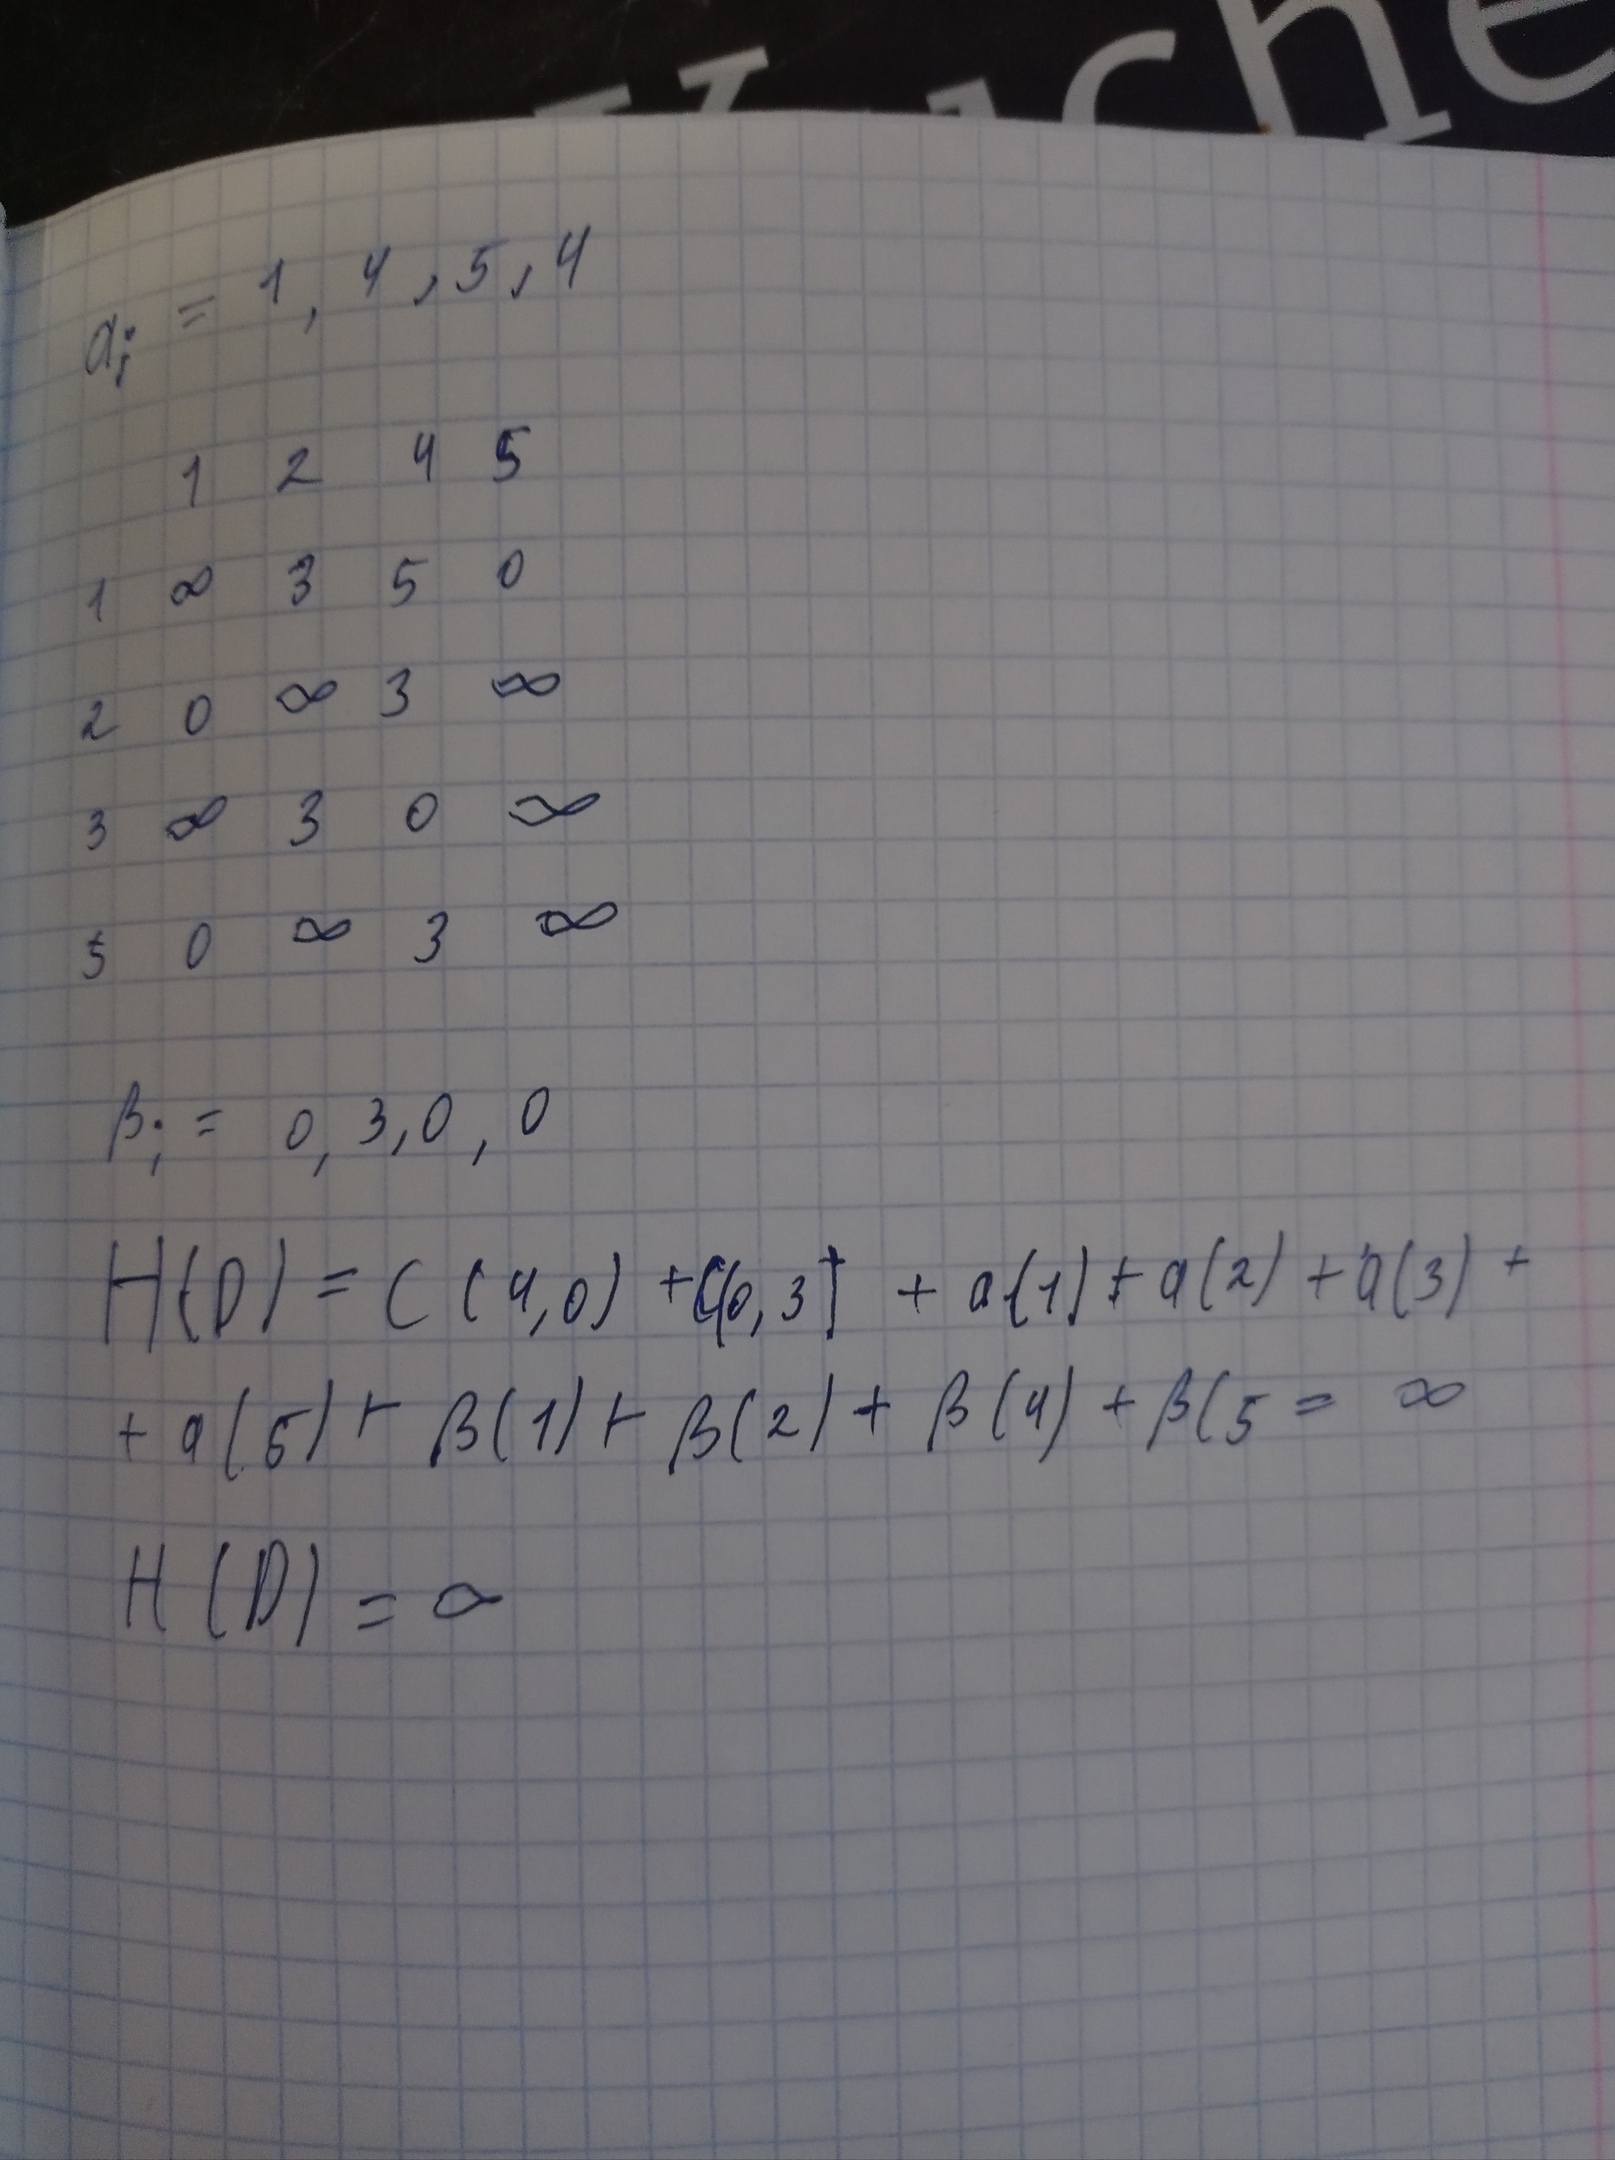 αᵢ = 1, 4, 5, 4
1 2 4 5
1 ∞ 3 5 0
2 0 ∞ 3 ∞
3 ∞ 3 0 ∞
5 0 ∞ 3 ∞
βⱼ = 0, 3, 0, 0
H(D) = C(4,0) + C(0,3) + a(1) + a(2) + a(3) +
+ a(5) + β(1) + β(2) + β(4) + β(5 = ∞
H(D) = ∞